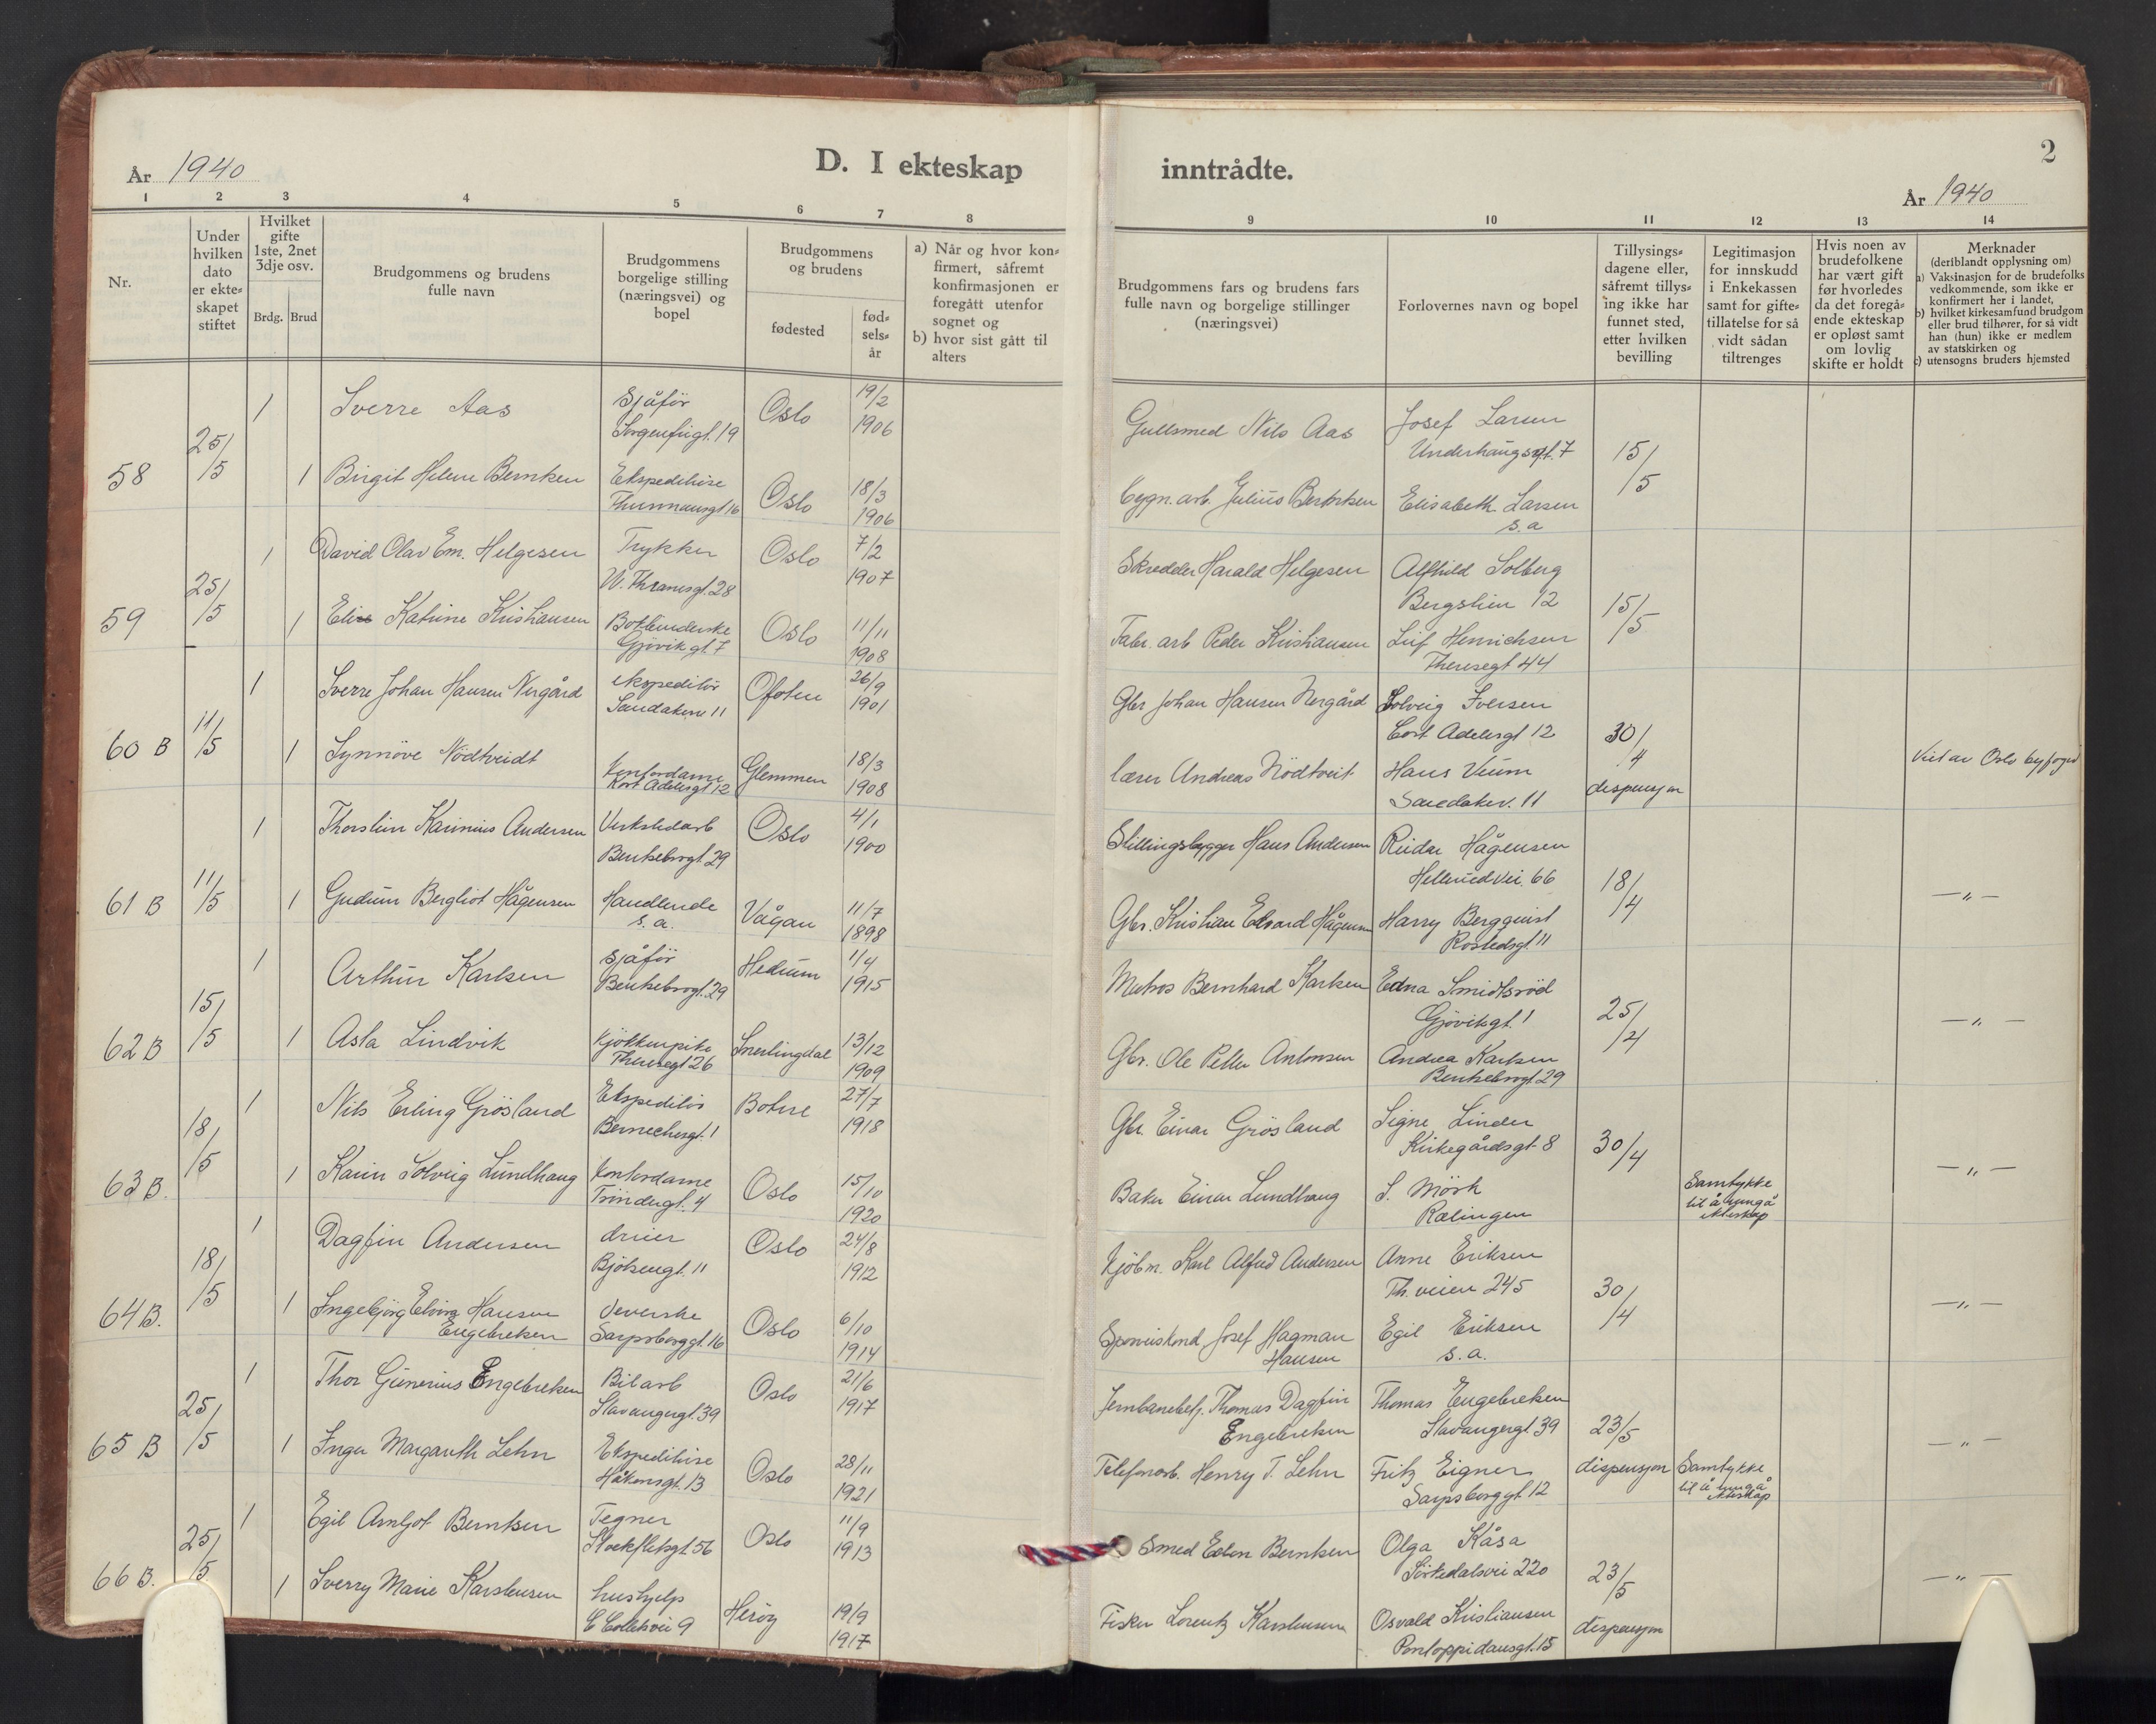 År 1940
D. I ekteskap
inntrådte.
2
År 1940
1 2 3 4 5 6 7 8
9 10 11 12 13 14
Nr.
Under hvilken dato er ekte-skapet stiftet
Hvilket gifte 1ste, 2net 3dje osv.
Brdg. Brud
Brudgommens og brudens fulle navn
Brudgommens borgelige stilling (næringsvei) og bopel
Brudgommens og brudens
fødested
fød-sels-år
a) Når og hvor kon-firmert, såfremt konfirmasjonen er foregått utenfor sognet og
b) hvor sist gått til alters
Brudgommens fars og brudens fars fulle navn og borgelige stillinger (næringsvei)
Forlovernes navn og bopel
Tillysings-dagene eller, såfremt tillys-ing ikke har funnet sted, etter hvilken bevilling
Legitimasjon for innskudd i Enkekassen samt for gifte-tillatelse for så vidt sådan tiltrenges
Hvis noen av brudefolkene har vært gift før hvorledes da det foregå-ende ekteskap er opløst samt om lovlig skifte er holdt
Merknader
(deriblandt opplysning om)
a) Vaksinasjon for de brudefolks vedkommende, som ikke er konfirmert her i landet,
b) hvilket kirkesamfund brudgom eller brud tilhører, for så vidt han (hun) ikke er medlem av statskirken og
c) utensogns bruders hjemsted
58 25/5
1 Sverre Aas Sjåfør Sorgenfrigt. 19 Oslo 19/2 1906 Gullsmed Nils Aas Josef Larsen Underhaugsgt. 7 15/5
1 Birgit Helene Berntsen Ekspeditrise Thurmannsgt 16 Oslo 18/3 1906 bygn. arb. Julius Berntsen Elisabeth Larsen s.a
59 25/5
1 David Olav Em. Helgesen Trykker W. Thranesgt. 28 Oslo 7/2 1907 Skredder Harald Helgesen Alfhild Solberg Bergslien 12 15/5
1 Elise Katrine Kristiansen Gjøvikgt. 7 Oslo 11/11 1908 Fabr. arb Peder Kristiansen Leif Henrichsen Theresegt 44
60 B 11/5
1 Sverre Johan Hansen Nergård ekspeditør Sandakerv 11 Ofoten 26/9 1901 Gbr Johan Hansen Nergård Solveig Iversen Cort Adelersgt 12 30/4 dispensjon
1 Synnöve Nödtveidt Kontordame Kort Adelersgt 12 Glemmen 18/3 1908 lærer Andreas Nödtveit Hans Veum Sandakerv. 11 Viet av Oslo byfogd
61 B 11/5
1 Thorstein Karinius Andersen Verkstedarb Bentsebrogt. 29 Oslo 4/1 1900 Stillingsbygger Hans Andersen Reidar Hågensen Hellerudvei. 66 18/4
1 Gudrun Bergliot Hågensen Handlende s.a. Vågan 11/7 1898 Gbr. Kristian Edvard Hågensen Harry Bergquist Rostedsgt. 11 — " —
62 B 15/5
1 Arthur Karlsen sjåfør Bentsebrogt. 29 Hedrum 11/4 1915 Matros Bernhard Karlsen Edna Smidtsröd Gjøvikgt. 1 25/4 — " —
1 Asta Lindvik Kjökkenpike Theresegt 26 Snerlingdal 13/12 1909 Gbr. Ole Petter Antonsen Andrea Karlsen Bentsebrogt. 29
63 B. 18/5
1 Nils Erling Grösland Ekspeditör Bernechersgt. 1 Botne 27/7 1918 Gbr. Einar Grösland Signe Linder Kirkegårdsgt. 8 30/4
1 Karin Solveig Lundhaug Kontordame Tröndergt. 4 Oslo 15/10 1920 Baker Einar Lundhaug S. Mörk Rælingen Samtykke til å inngå ekteskap — " —
64 B. 18/5
1 Dagfin Andersen dreier Bjölsengt. 11 Oslo 24/8 1912 Kjöbm. Karl Alfred Andersen Anne Eriksen Th. veien 245 30/4
1 Ingebjörg Elvira Hansen Engebretsen Veverske Sarpsborggt. 16 Oslo 6/10 1914 Josef Hagman Hansen Egil Eriksen s.a. — " —
65 B 25/5
1 Thor Gunerius Engebretsen Bilarb Stavangergt. 39 Oslo 21/6 1917 Jernbanebetj. Thomas Dagfin Engebretsen Thomas Engebretsen Stavangergt. 39 23/5 dispensjon
1 Inger Margareth Lehn Ekspeditrise Håkonsgt. 13 Oslo 28/11 1921 Telefonarb. Henry T. Lehn Fritz Eigner Sarpsborggt. 12 Samtykke til å inngå ekteskap — " —
66 B. 25/5
1 Egil Arnljot Berntsen Tegner Stockfletsgt. 56 Oslo 11/9 1913 Smed Edvin Berntsen Olga Kåsa Sörkedalsvei 220 23/5 dispensjon
1 Sverry Marie Karstensen hushjelp C Colletsvei 9 Heröy 19/9 1917 Fisker Lorentz Karstensen Osvald Kristiansen Pontoppidansgt. 15 — " —